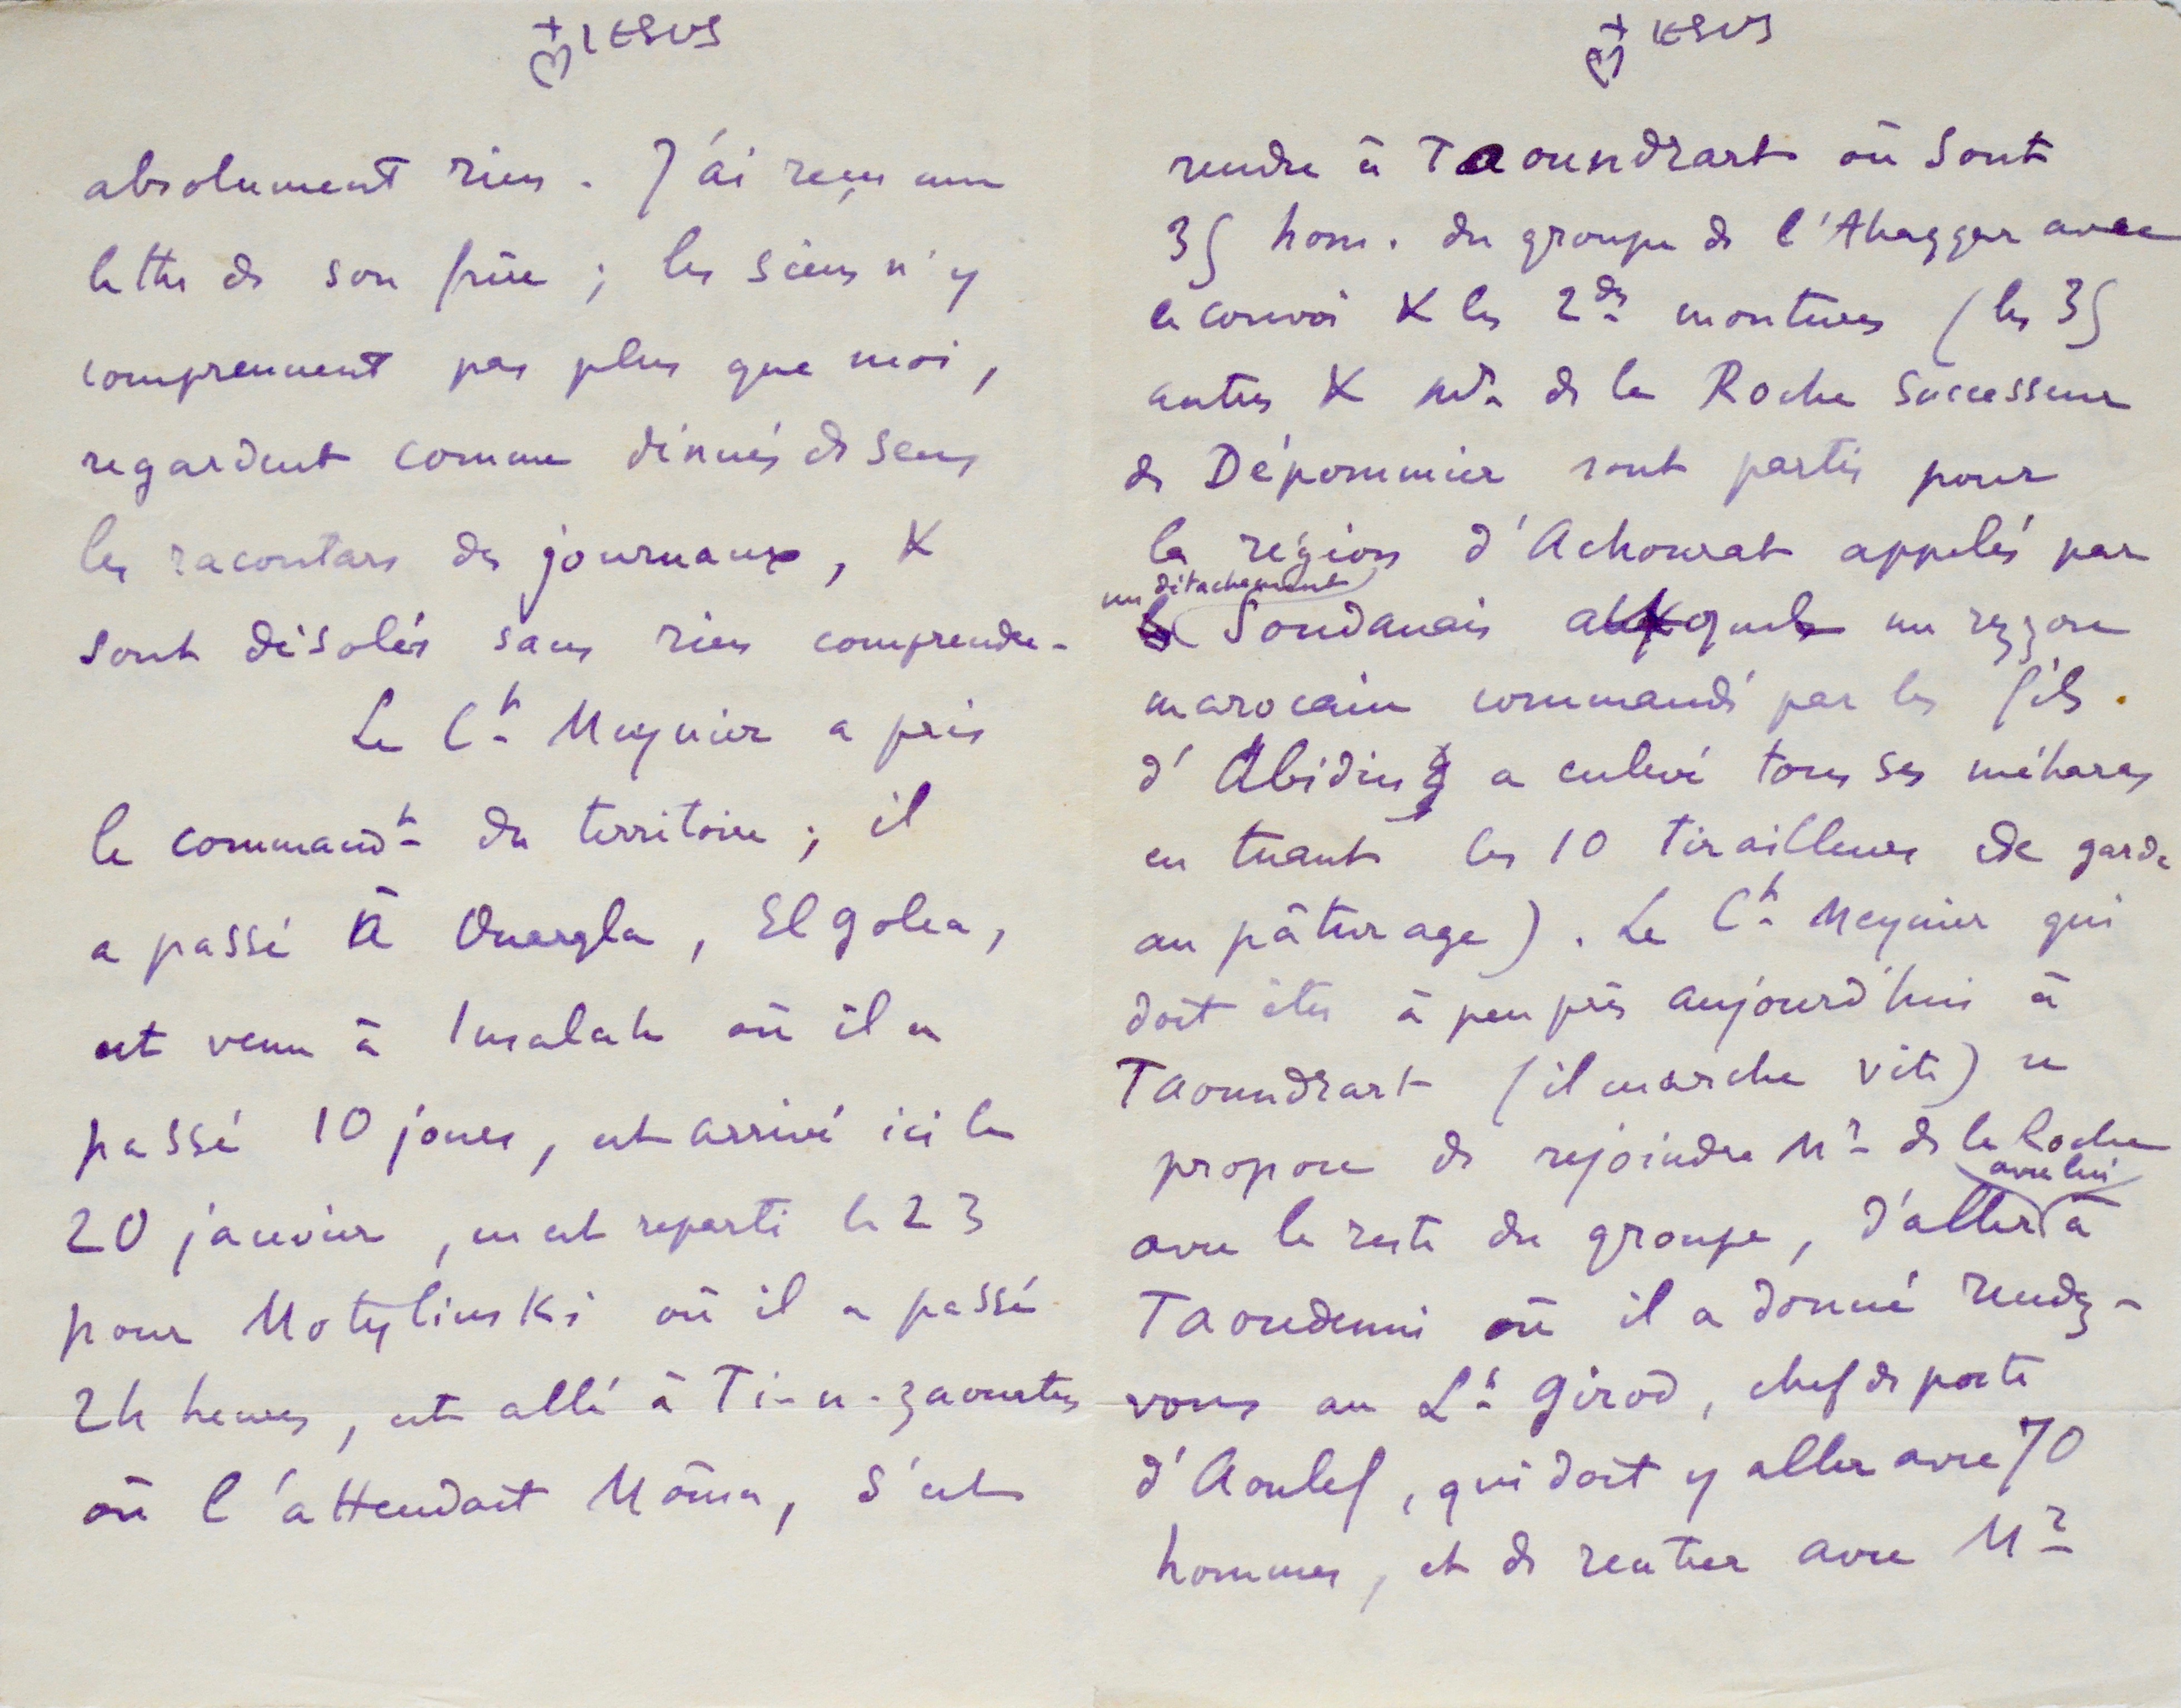 JESUS
absolument rien. J'ai reçu une
lettre de son frère ; les siens n'y
comprennent pas plus que moi,
regardent comme dénués de sens
les racontars des journaux, &
sont désolés sans rien comprendre.
Le Ct Meynier a pris
le commandt du territoire ; il
a passé à Ouargla, El Golea,
est venu à Insalah où il a
passé 10 jours, est arrivé ici le
20 janvier, en est reparti le 23
pour Motylinski où il a passé
24 heures, est allé à Ti-n-zaouaten
où l'attendait Moûsa, s'est
JESUS
rendre à Taoundrart où sont
35 hom. du groupe de l'Ahaggar avec
le convoi & les 2des montures (les 35
autres & Mr de la Roche successeur
de Dépommier sont partis pour
la région d'Achourat appelés par
un détachement
Soudanais auquel un rezzou
marocain commandé par les fils
d'Abidin a enlevé tous ses méharas
en tuant les 10 tirailleurs de garde
au pâturage). Le Ct Meynier qui
doit être à peu près aujourd'hui à
Taoundrart (il marche vite) se
propose de rejoindre Mr de la Roche
avec le reste du groupe, d'aller avec lui à
Taoudenni où il a donné rendez-
vous au Lt Girod, chef de poste
d'Aoulef, qui doit y aller avec 70
hommes, et de rentrer avec Mr